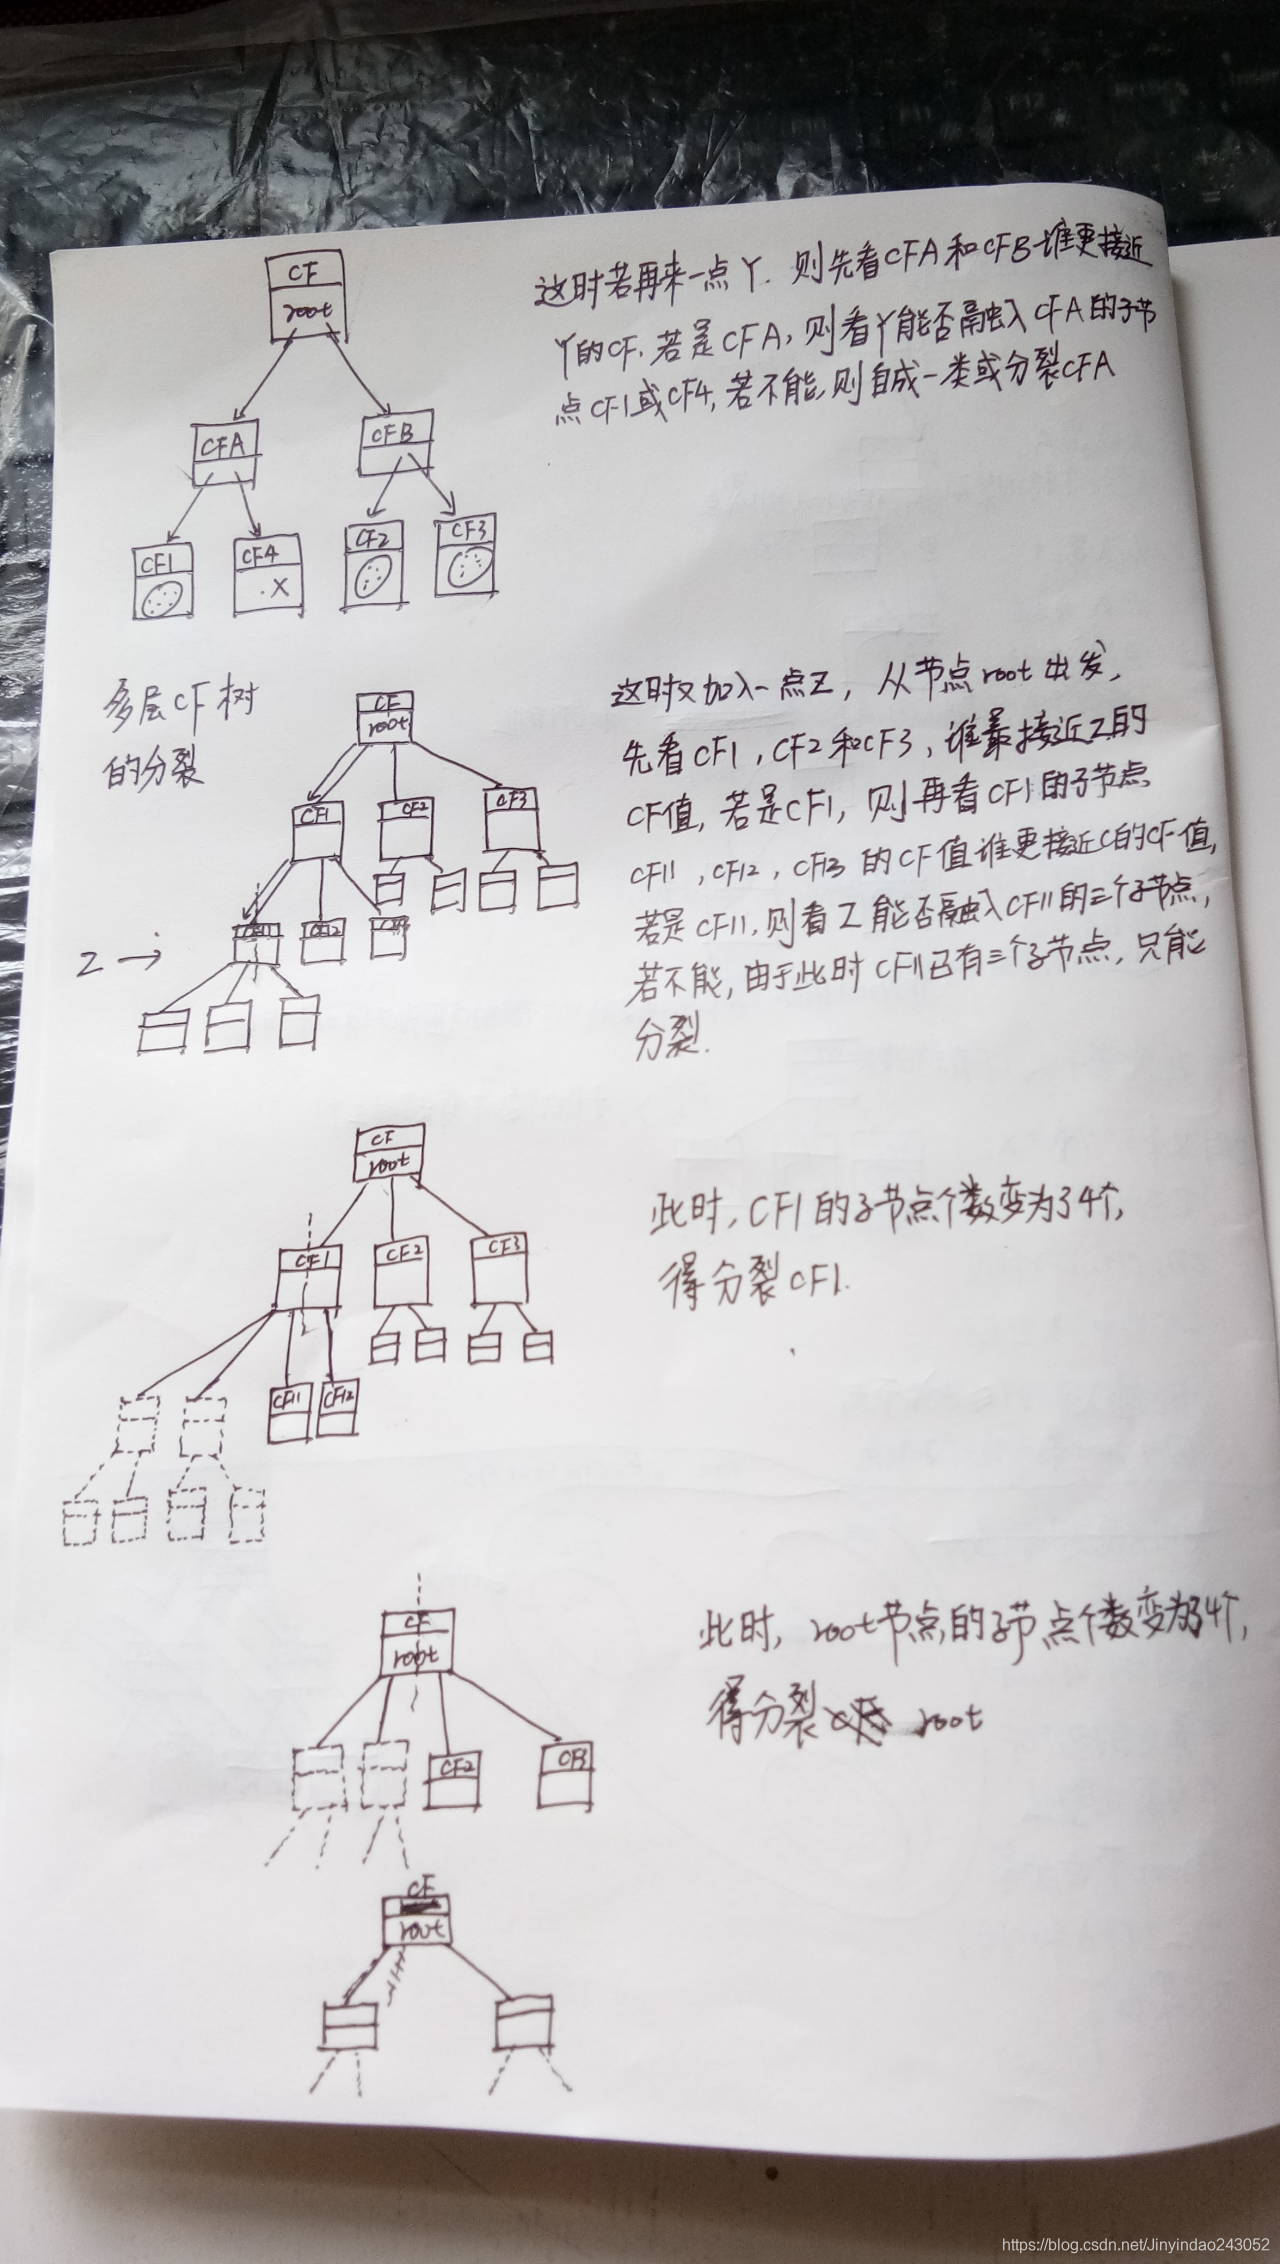 CF
root
CFA
CFB
CF1
CF4
CF2
CF3
.X
这时若再来一点Y. 则先看CFA和CFB谁更接近
Y的CF, 若是CFA, 则看Y能否融入CFA的子节
点CF1或CF4, 若不能, 则自成一类或分裂CFA
多层CF树
的分裂
CF
root
CF1
CF2
CF3
CF11
CF12
CF13
Z
这时又加入一点Z, 从节点root出发,
先看CF1, CF2和CF3, 谁最接近Z的
CF值, 若是CF1, 则再看CF1的子节点
CF11, CF12, CF13的CF值谁更接近C的CF值,
若是CF11, 则看Z能否融入CF11的三个子节点,
若不能, 由于此时CF11已有三个子节点, 只能
分裂.
CF
root
CF1
CF2
CF3
CF11
CF12
此时, CF1的子节点个数变为了4个,
得分裂CF1.
CF
root
CF2
CF3
此时, root节点的子节点个数变为了4个,
得分裂 root
CF
root
https://blog.csdn.net/Jinyindao243052